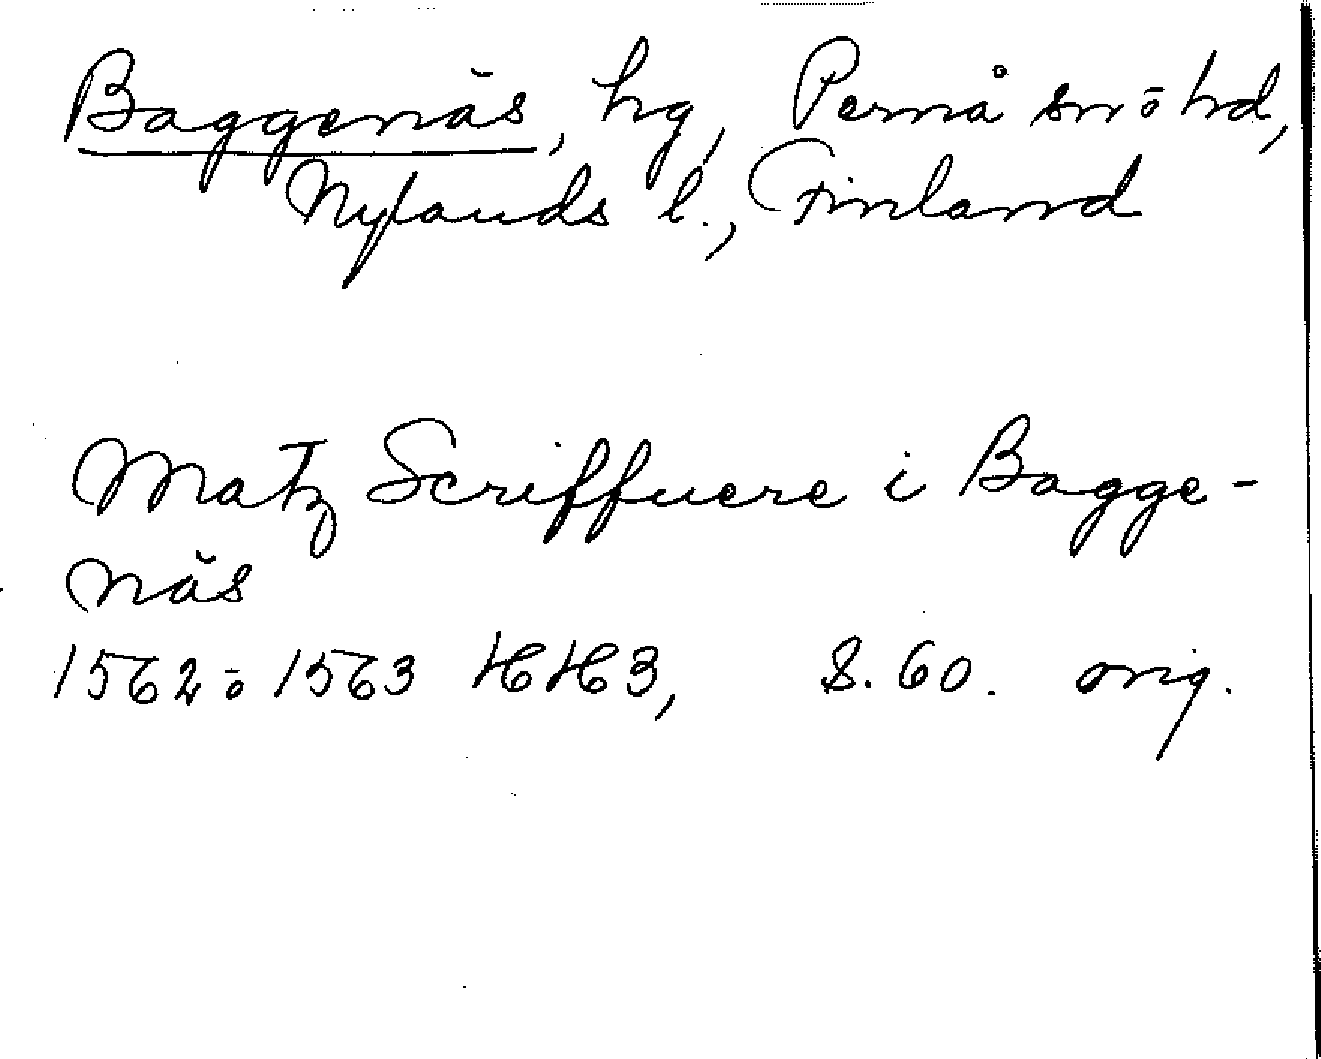 Baggenäs, hg, Pernå sn o hd,
Nylands l., Finland
Matz Scriffuere i Bagge-
näs
1562 o 1563 HH 3, S. 60. orig.